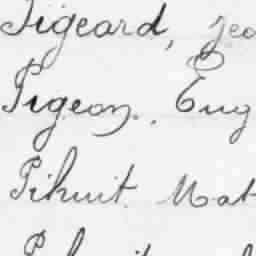 Pigeard, Jea
Pigeon. Eug
Pihuit Mat